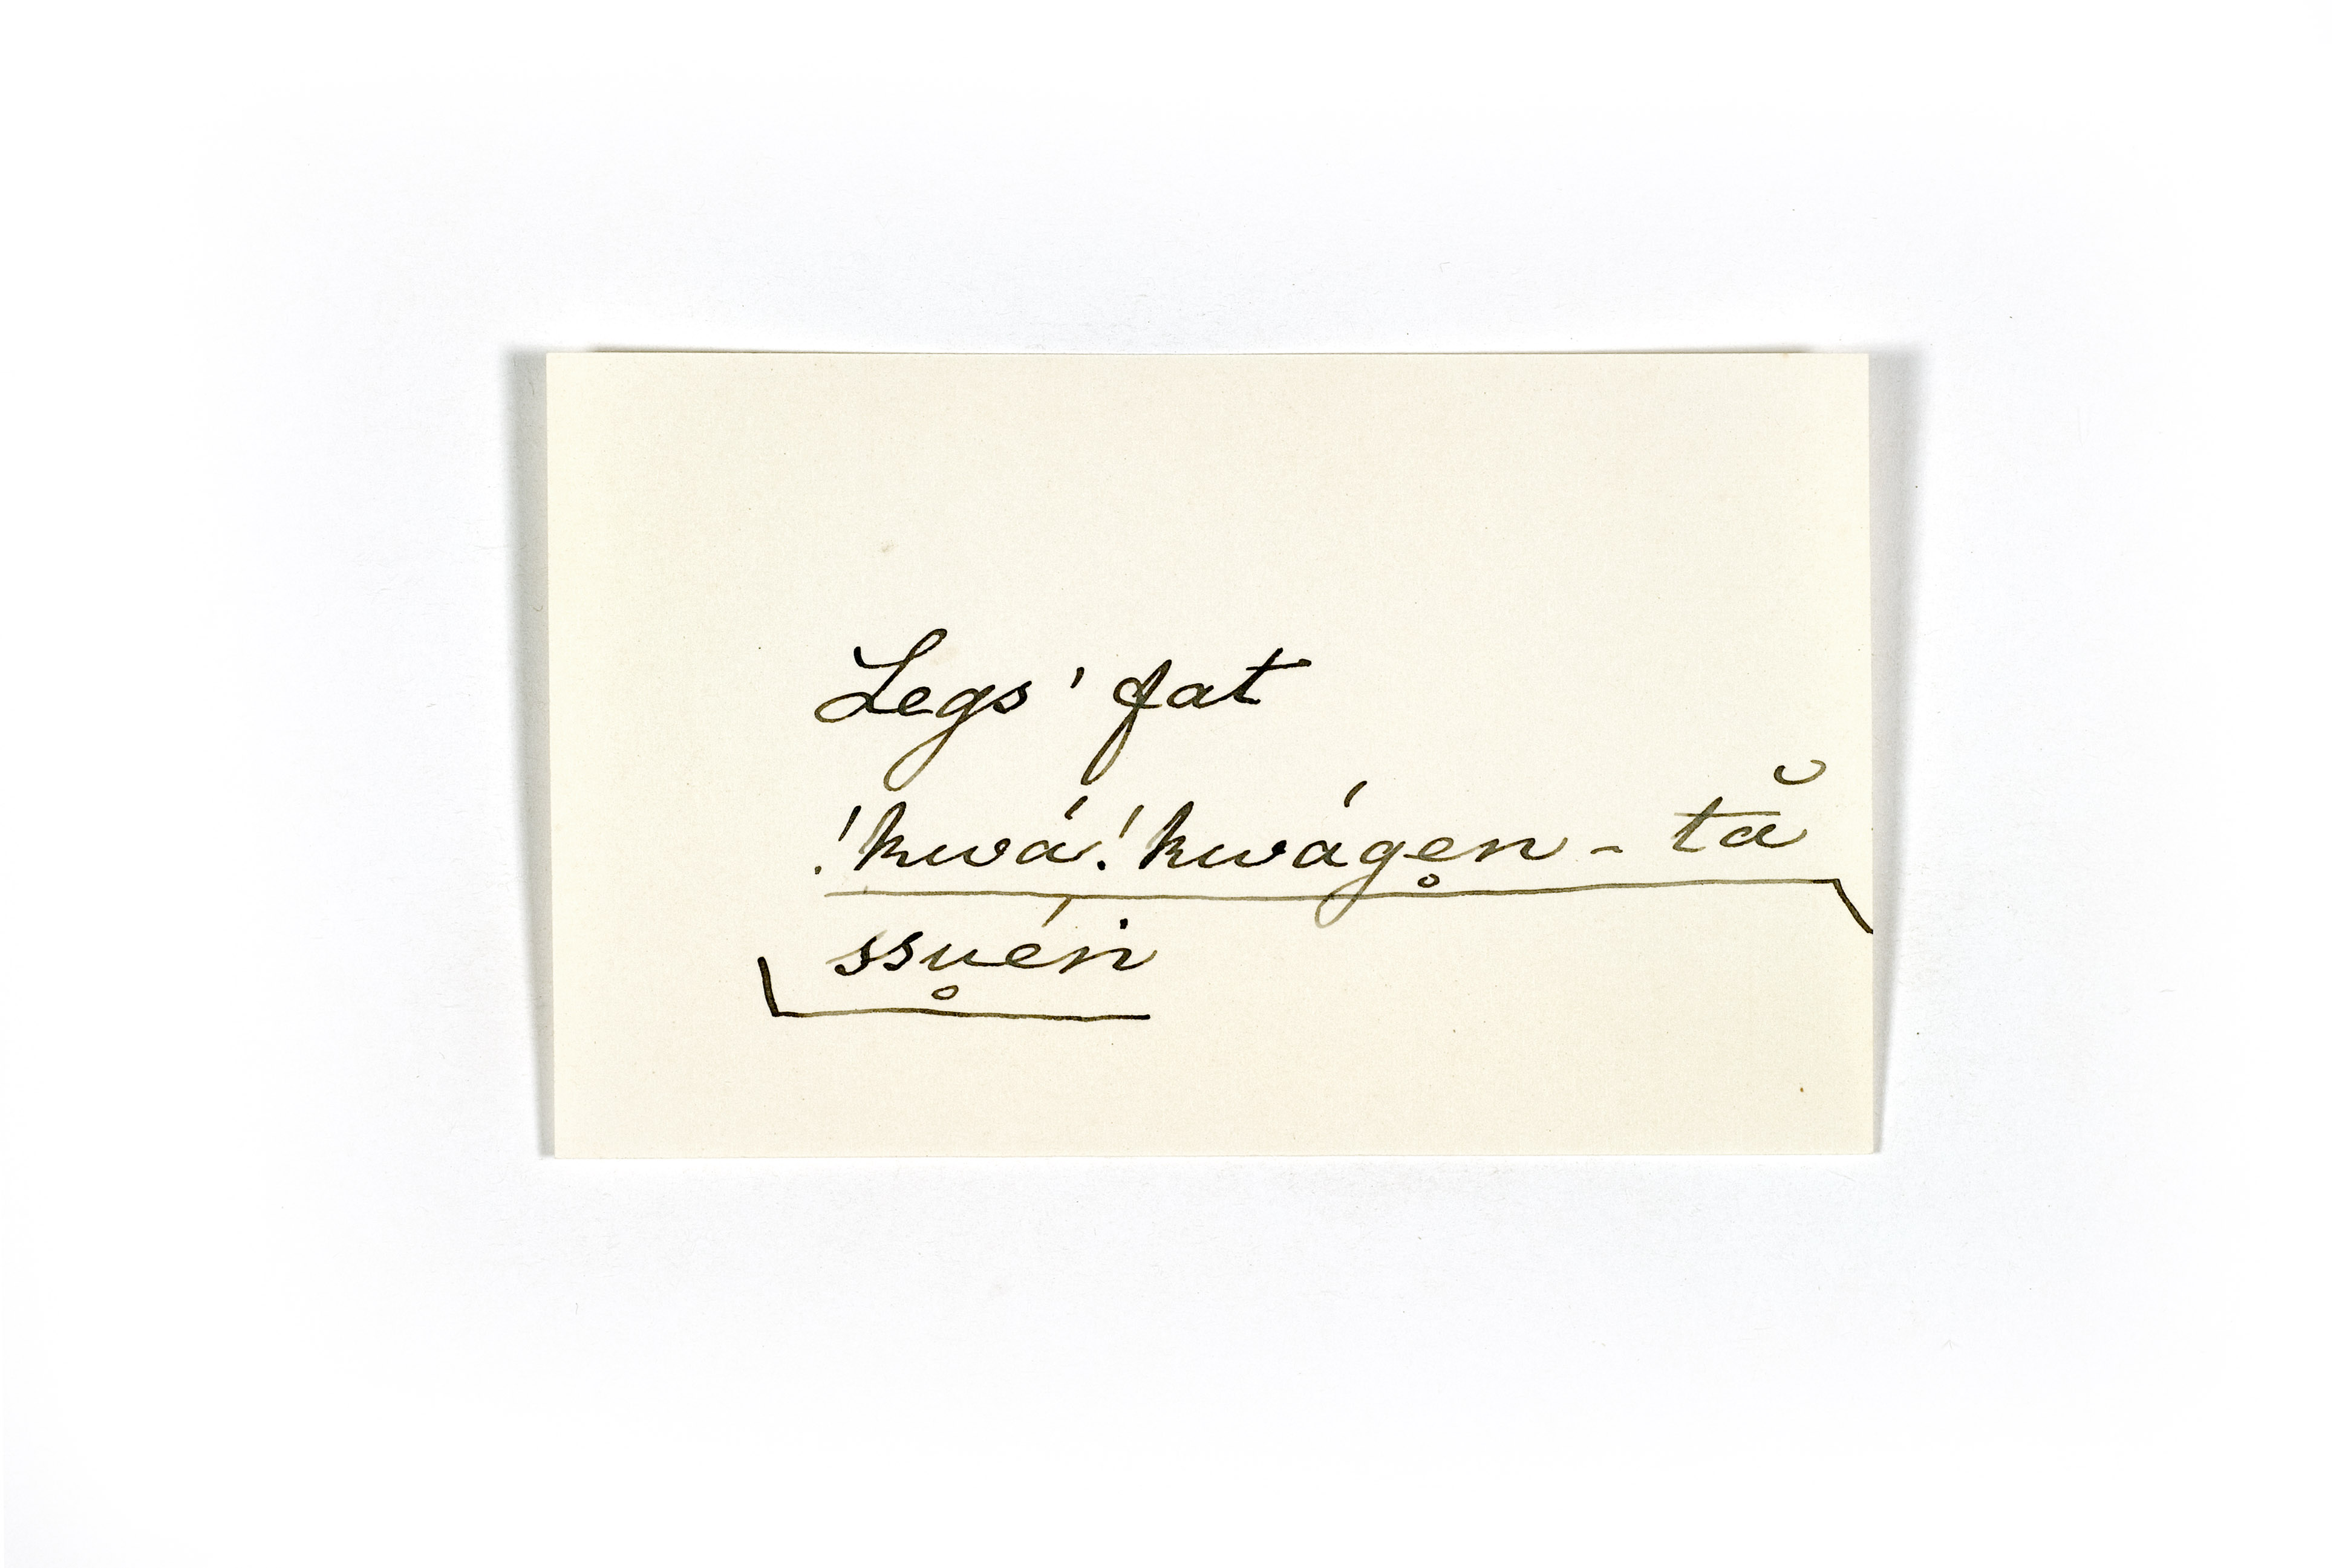 Legs' fat
!kwá!kwáge̥n - tă
ssu̥éṅ